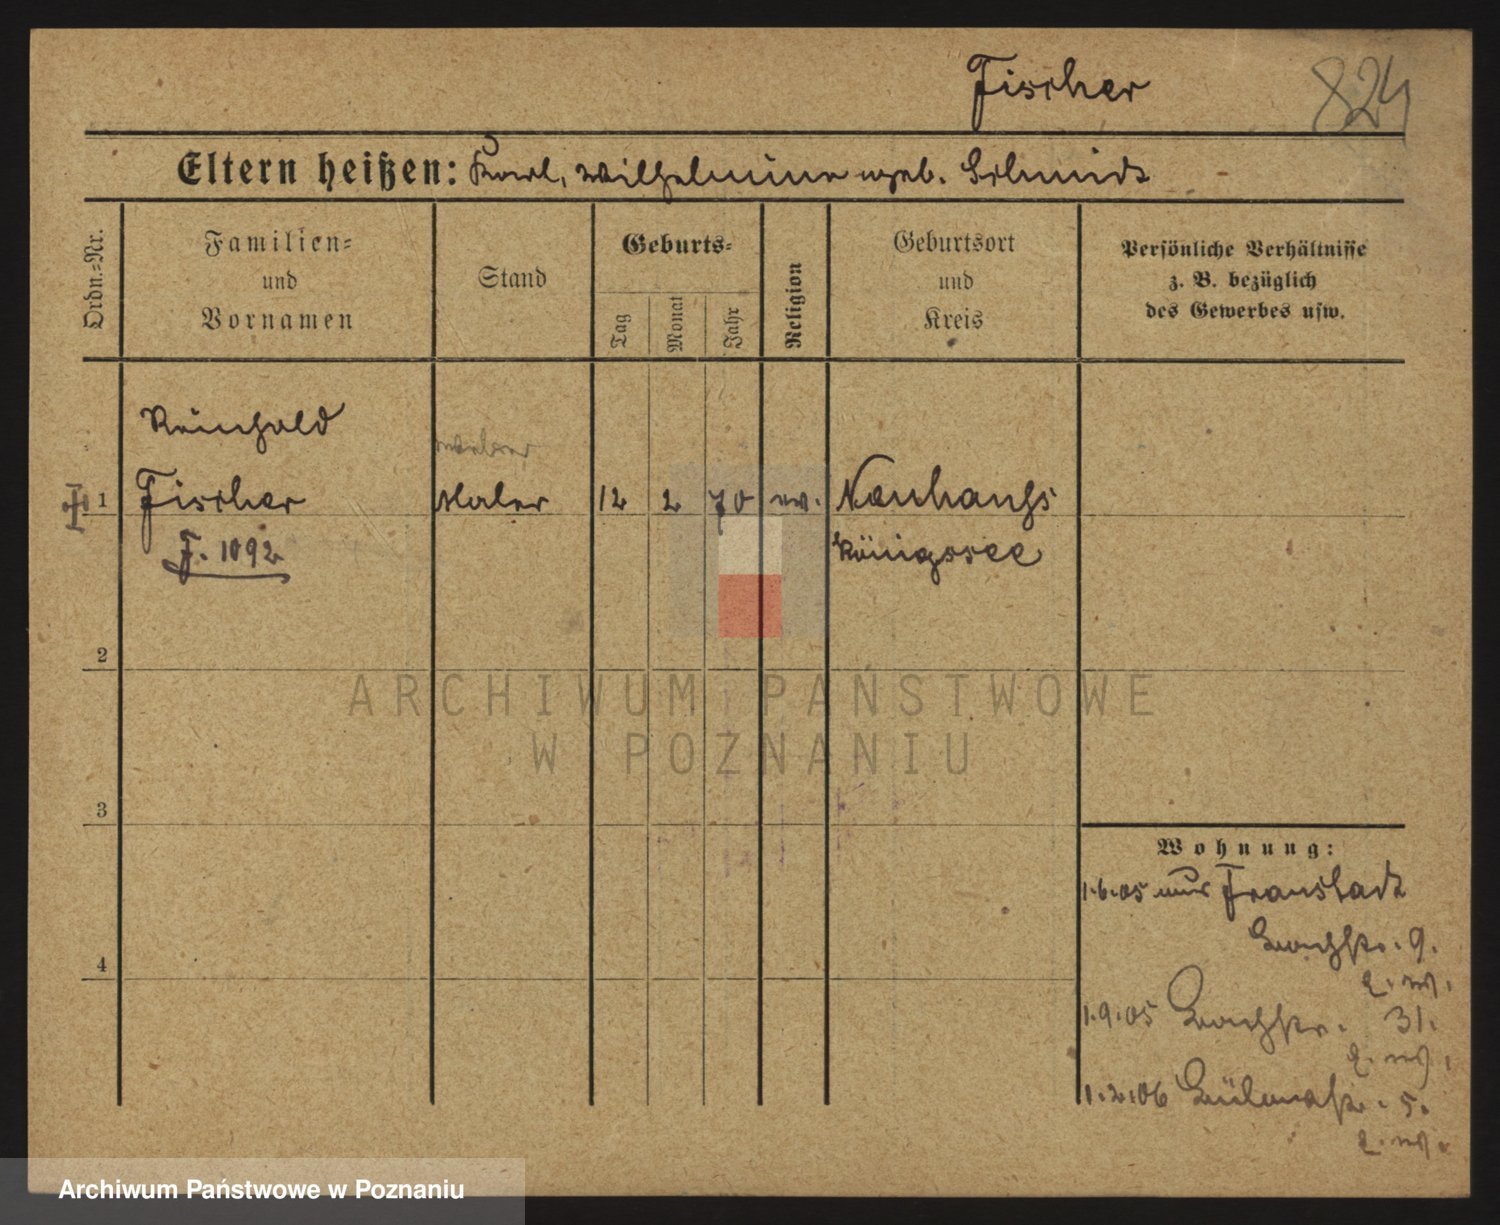 Fischer 824
Eltern heißen: Karl, Wilhelmine geb. Schmidt
Ordn.=Nr.
Familien=
und
Vornamen
Stand
Geburts=
Tag
Monat
Jahr
Religion
Geburtsort
und
Kreis
Persönliche Verhältnisse
z. B. bezüglich
des Gewerbes usw.
Reinhold
1 Fischer Maler 12 2 70 ev. Neuhaugs
F. 1092 Königssee
2
3
4
Wohnung:
1.6.05 aus Fraustadt
Bachstr. 9.
1.9.05 Bachstr. 31.
1.2.06 5.
ARCHIWUM PAŃSTWOWE
W POZNANIU
Archiwum Państwowe w Poznaniu